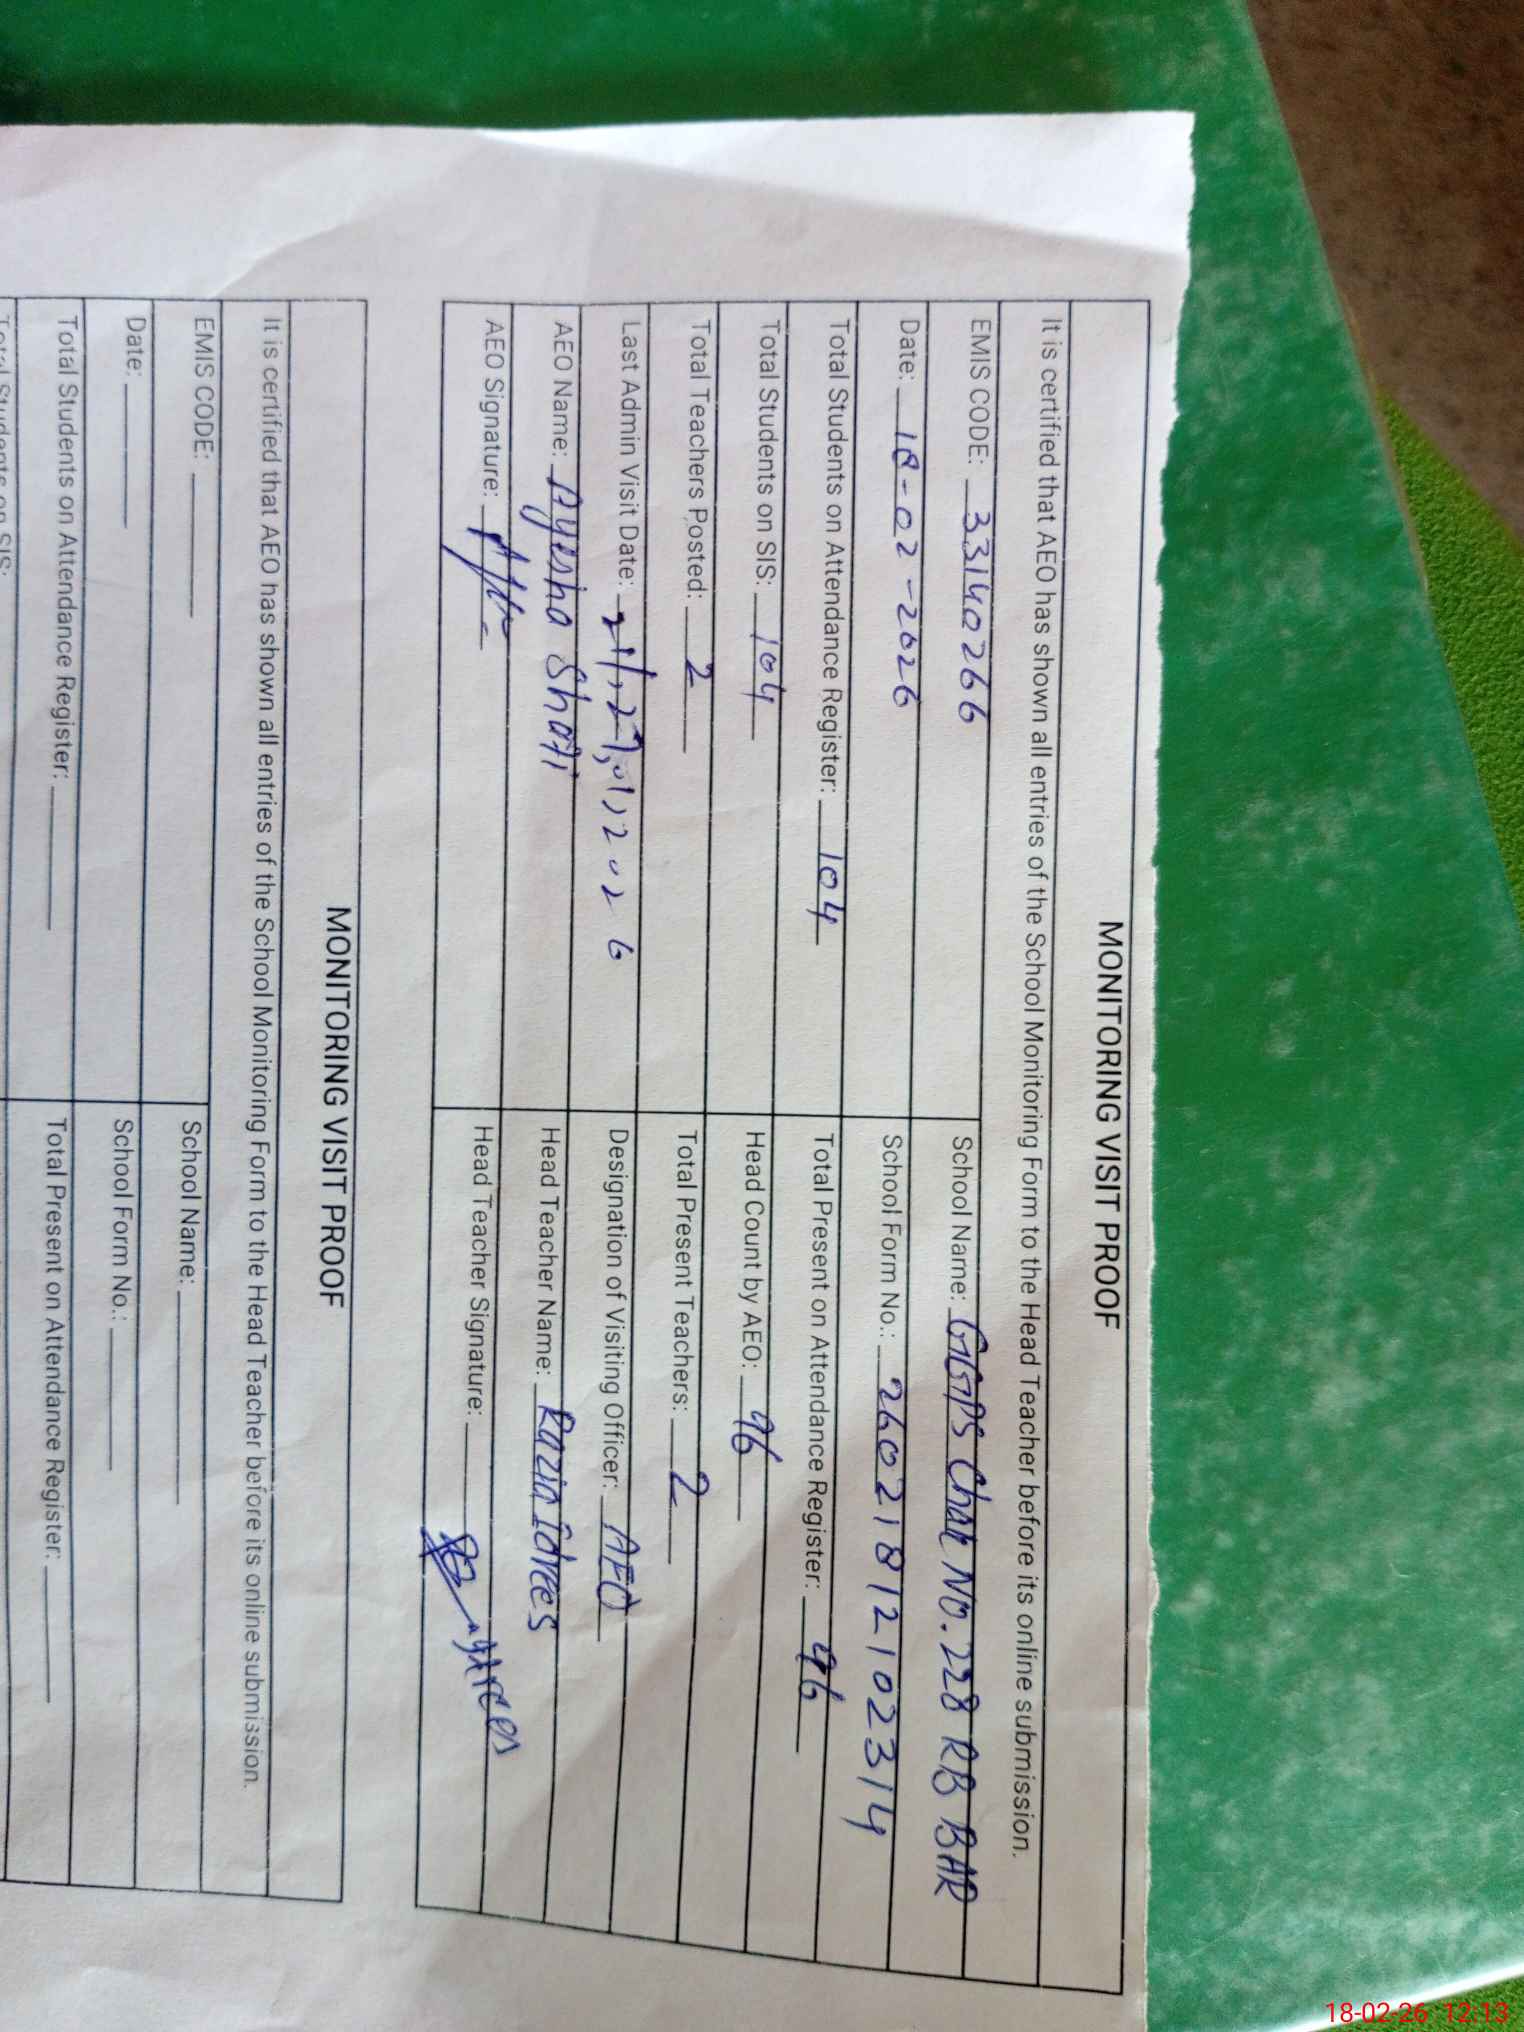 MONITORING VISIT PROOF
It is certified that AEO has shown all entries of the School Monitoring Form to the Head Teacher before its online submission.
EMIS CODE: 33140266 School Name: GGPS Chak No. 228 RB BAR
Date: 18-02-2026 School Form No.: 26021812102314
Total Students on Attendance Register: 104 Total Present on Attendance Register: 96
Total Students on SIS: 104 Head Count by AEO: 96
Total Teachers Posted: 2 Total Present Teachers: 2
Last Admin Visit Date: 2026 Designation of Visiting Officer: AEO
AEO Name: Ayesha Shafi Head Teacher Name: Razia Idrees
AEO Signature: Head Teacher Signature:
MONITORING VISIT PROOF
It is certified that AEO has shown all entries of the School Monitoring Form to the Head Teacher before its online submission.
EMIS CODE: School Name:
Date: School Form No.:
Total Students on Attendance Register: Total Present on Attendance Register:
Total Students on SIS:
18-02-26 12:13